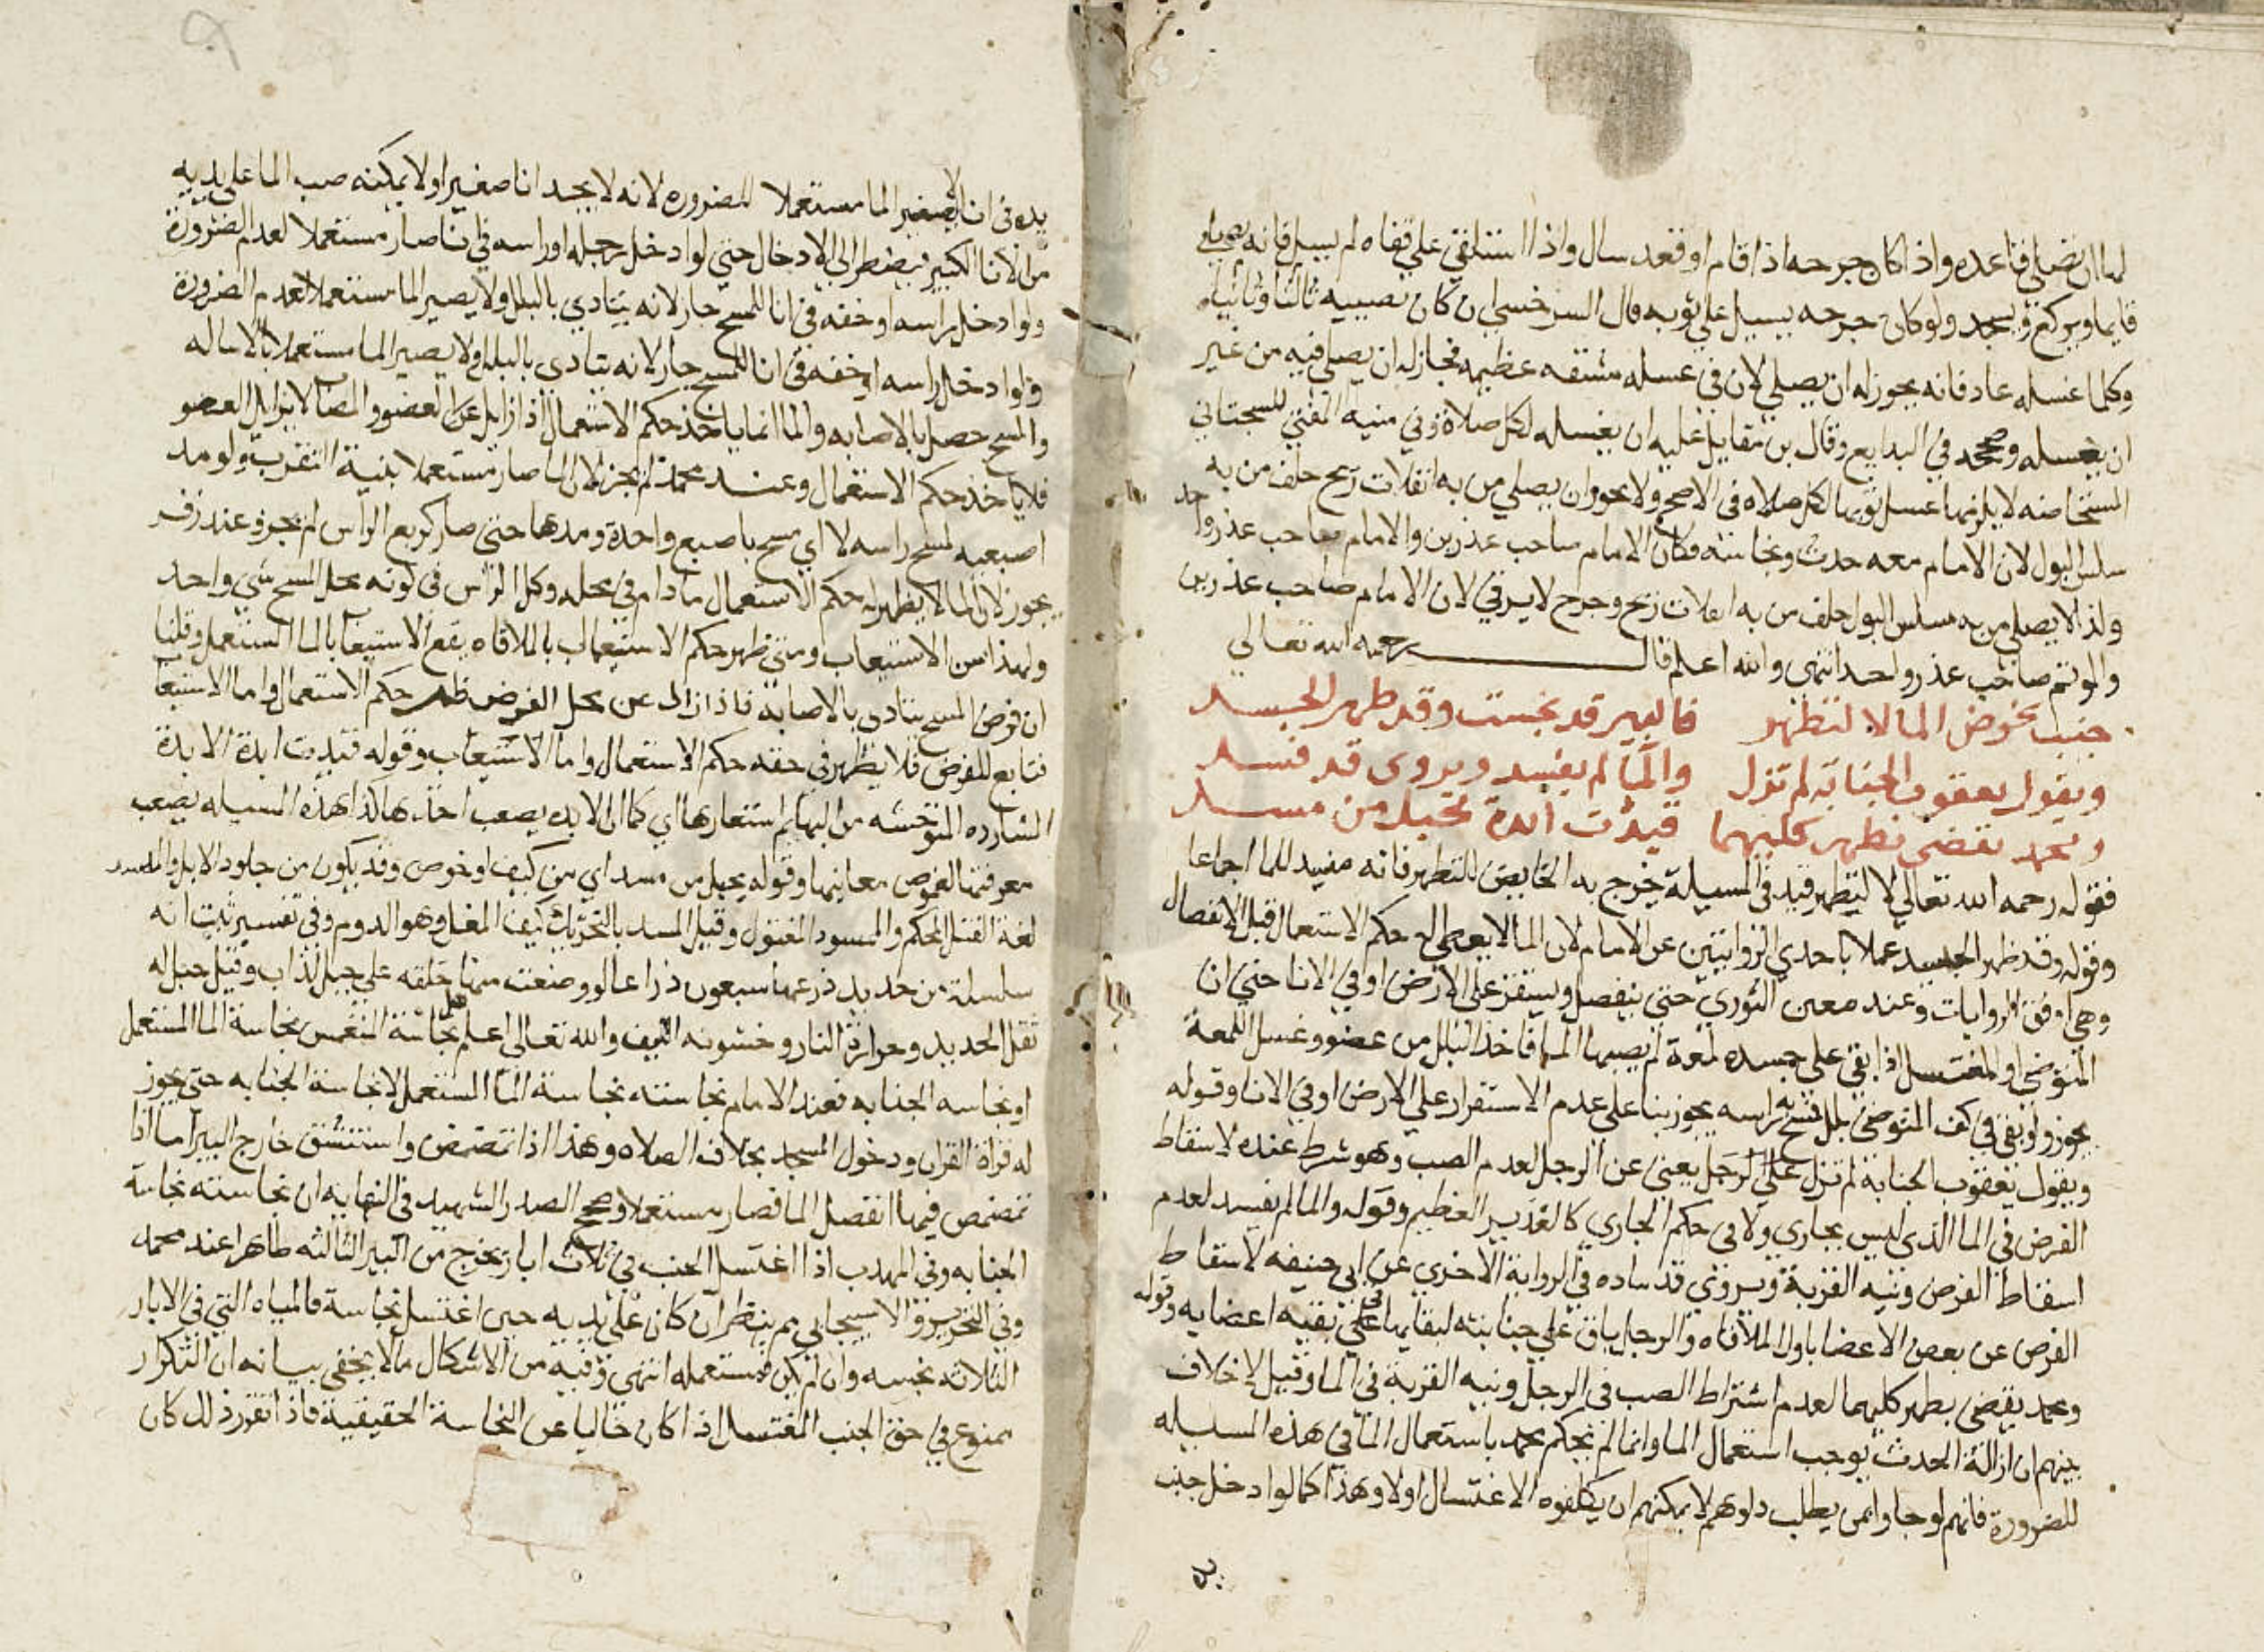 لها ان تصلي قاعده واذا كان جرحه اذا قام او قعد سال واذا استلقي علي قفاه لم يسيل فانه يصلي
قايما ويركع ويسجد ولو كان جرحه يسيل علي ثوبه قال السرخسي ان كان يصيبه ثالثا وثانيا
وكلما غسله عاد فانه يجوز له ان يصلي لان في غسله مشقه عظيمه فجاز له ان يصلي فيه من غير
ان يغسله وصححه في البدايع وقال بن مقاتل عليه ان يغسله لكل صلاة وفي منية المفتي للسجستاني
المستحاضه لا يلزمها غسل ثوبها لكل صلاه في الاصح ولا يجوز ان يصلي من به انفلات ريح خلف من به
سلس البول لان الامام معه حدث ونجاسه فكان الامام صاحب عذرين والامام صاحب عذر واحد
ولذا لا يصلي من به سلس البول خلف من به انفلات ريح وجرح لا يرقي لان الامام صاحب عذرين
والموتم صاحب عذر واحد انتهى والله اعلم قال رحمه الله تعالي
جنب يخوض الما لا لتطهر فالبير قد نجست وقد طهر الجسد
ويقول يعقوب الجنابة لم تزل والما لم يفسد ويروى قد فسد
ومحمد يقضي بطهر كليهما قيدت ابدة بحبل من مسد
فقوله رحمه الله تعالي لا ليتطهر قيد في المسيلة يخرج به الخايض للتطهر فانه مفسد للما اجماعا
وقوله وقد طهر الجسد عملا باحدي الروايتين عن الامام لان الما لا يعطي له حكم الاستعمال قبل الانفصال
وهي اوفق الروايات وعند معين الثوري حتي ينفصل ويستقر علي الارض او في الانا حتي ان
المتوضي او المغتسل اذا بقي علي جسده لمعة لم يصبها الما فاخذ البلل من عضو وغسل اللمعة
يجوز ولو بقي في كف المتوضي بلل فمسح به راسه يجوز بنا على عدم الاستقرار علي الارض او في الانا وقوله
ويقول يعقوب الجنابة لم تزل علي الرجل يعني عن الرجل لعدم الصب وهو شرط عنده لاسقاط
الفرض في الما الذي ليس بجاري ولا في حكم الجاري كالغدير العظيم وقوله والما لم يفسد لعدم
اسقاط الفرض ونيه القربة ويروي فساده في الرواية الاخري عن ابي حنيفه لاسقاط
الفرض عن بعض الاعضا باول الملاقاه والرجل باق علي جنابته لبقايها علي بقيه اعضايه وقوله
ومحمد يقضي بطهر كليهما لعدم اشتراط الصب في الرجل ونيه القربة في الما وقيل لا خلاف
بينهم ان ازالة الحدث يوجب استعمال الما وانما لم يحكم محمد باستعمال الما في هذه المسيله
للضرورة فانهم لو جاوا بمن يطلب دلوهم لا يمكنهم ان يكلفوه الاغتسال اولا وهذا كما لو ادخل جنب
يده
يده في انا لا يصير الما مستعملا للضروره لانه لا يجد انا صغيرا ولا يمكنه صب الما على يديه
من الانا الكبير فيضطر الي الادخال حتي لو ادخل رجله او راسه في انا صار مستعملا لعدم الضرورة
ولو ادخل راسه او خفه في انا للمسح جاز لانه يتادي بالبلل ولا يصير الما مستعملا لعدم الضرورة
ولو ادخل راسه او خفه في انا للمسح جاز لانه يتادي بالبلل ولا يصير الما مستعملا بالاساله
والمسح حصل بالاصابه والما انما ياخذ حكم الاستعمال اذا زايل عن العضو والمصاب لا يزايل العضو
فلا ياخذ حكم الاستعمال وعند محمد لم يجز لان الما صار مستعملا بنية التقرب ولو مد
اصبعيه لمسح راسه لا اي مسح باصبع واحدة ومدها حتى صار كربع الراس لم يجز وعند زفر
يجوز لان الما لا يظهر له حكم الاستعمال ما دام في محله وكل الراس في كونه محل المسح شي واحد
ولهذا سن الاستيعاب ومتى ظهر حكم الاستعمال بالملاقاه يقع الاستيعاب بالما المستعمل وقلنا
ان فرض المسح يتادى بالاصابة فاذا زال عن محل الفرض ظهر حكم الاستعمال واما الاستيعاب
فتابع للفرض فلا يظهر في حقه حكم الاستعمال واما الاستيعاب وقوله قيدت ابدة الابدة
الشارده المتوحشه من البهايم استعارها اي كما ان الابده يصعب اخذها كذا هذه المسيله يصعب
معرفتها لغموض معانيها وقوله بحبل من مسد اي من ليف او خوص وقد يكون من جلود الابل والمسد
لغة الفتل المحكم والمسود المفتول وقيل المسد بالتحريك ليف المقل وهو الدوم وفي تفسير تبت انه
سلسلة من حديد ذرعها سبعون ذراعا لو وضعت منها حلقه على جبل لذاب وقيل حبل له
ثقل الحديد وحرارة النار وخشونه الليف والله تعالى اعلم قيل نجاسة المنغمس نجاسة الما المستعمل
او نجاسه الجنابه فعند الامام نجاسته نجاسة الما المستعمل لا نجاسة الجنابه حتى يجوز
له قراة القران ودخول المسجد بخلاف الصلاه وهذا اذا تمضمض واستنشق خارج البير اما اذا
تمضمض فيها انفصل الما فصار مستعملا وصحح الصدر الشهيد في النهايه ان نجاسته نجاسة
الجنابه وفي المهدب اذا اغتسل الجنب في ثلاث ابار يخرج من البير الثالثه طاهرا عند محمد
وفي التحرير والاسبيجابي ثم ينظر ان كان علي يديه حين اغتسل نجاسة فالمياه التي في الابار
الثلاثه نجسه وان لم يكن فمستعمله انتهى وفيه من الاشكال مالا يخفى بيانه ان التكرار
ممنوع في حق الجنب المغتسل اذا كان خاليا عن النجاسة الحقيقية فاذا تقرر ذلك كان